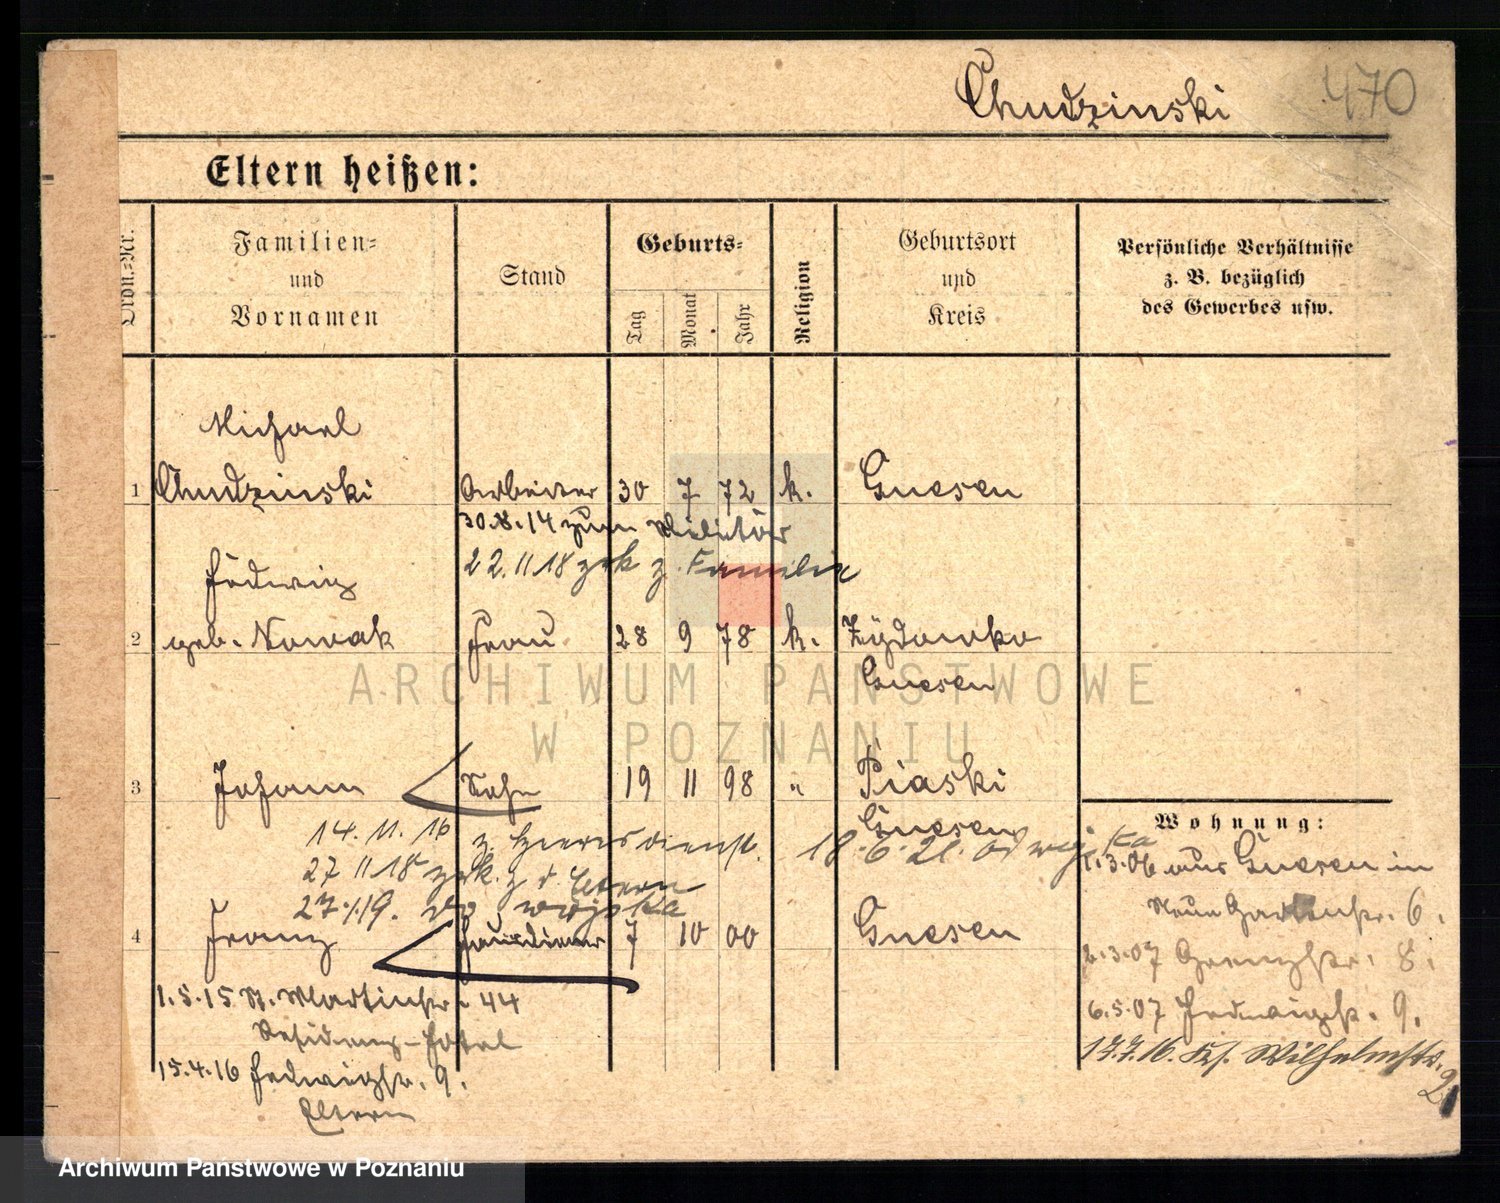 Chudzinski 470
Eltern heißen:
Ordn.=Nr.
Familien= und Vornamen
Stand
Geburts=
Tag Monat Jahr
Religion
Geburtsort und Kreis
Persönliche Verhältnisse
z. B. bezüglich
des Gewerbes usw.
Michael
1 Chudzinski Arbeiter 30 7 72 k. Gnesen
30.8.14 zum Militär
22.11 18 zrk z. Familie
Hedwig
2 geb. Nowak Frau 28 9 78 k.
Gnesen
3 Johann Sohn 19 11 98 " Piaski
Gnesen
14. 11. 16 z. Heeresdienst.
27 11 18 zrk. z d. Eltern
27. 1. 19. do wojska
18. 6. 21. od wojska
4 Franz Hausdiener 7 10 00 Gnesen
1.5.15 St. Martinstr. 44
Residenz-Hotel
15.4.16 Hedwigstr. 9.
Eltern
Wohnung:
1.3.06 aus Gnesen in
Neue Gartenstr. 6.
2.3.07 Grenzstr. 8.
6.5.07 Hedwigstr. 9.
17.7.16. Ks. Wilhelmstr. 21
ARCHIWUM PAŃSTWOWE
W POZNANIU
Archiwum Państwowe w Poznaniu